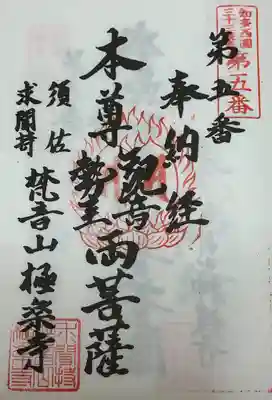 知多西国
三十三ヶ所
第五番
第五番
奉納経
本尊 観音勢至両菩薩
須佐
求聞持
梵音山極楽寺